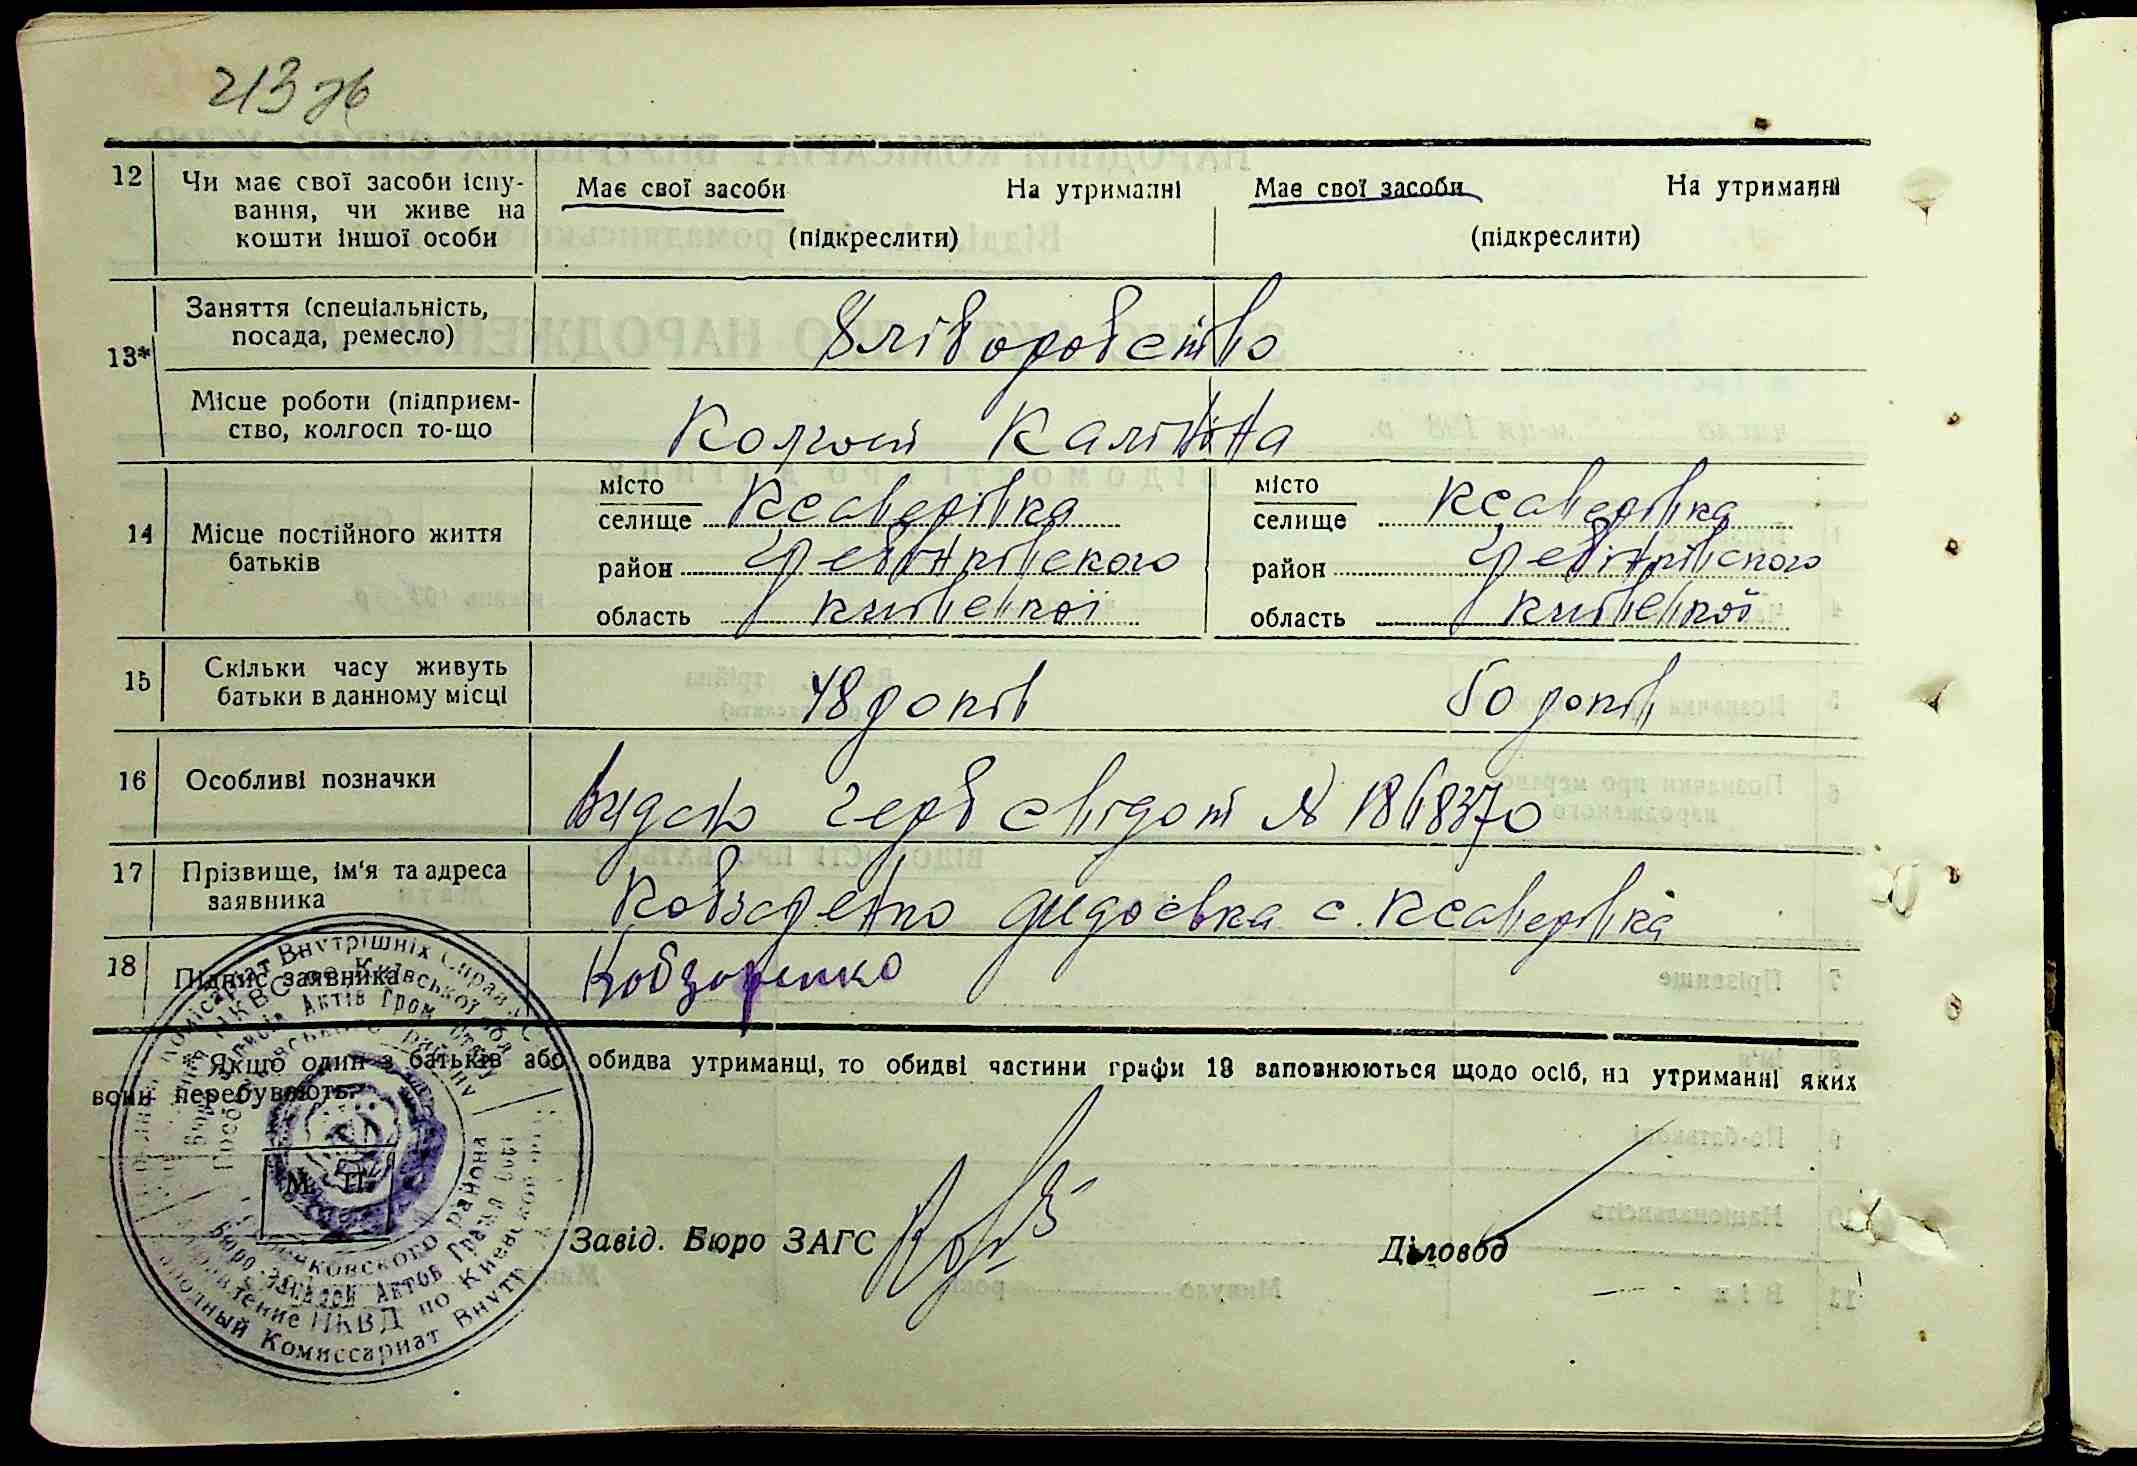 213 зв
12 Чи має свої засоби існу-
вання, чи живе на
кошти іншої особи
Має свої засоби На утриманні
(підкреслити)
Має свої засоби На утриманні
(підкреслити)
13* Заняття (спеціальність,
посада, ремесло)
Хліборобство
Місце роботи (підприєм-
ство, колгосп то-що
Колгосп Калініна
14 Місце постійного життя
батьків
місто
селище Ксаверівка
район Гребінківского
область Київської
місто
селище Ксаверівка
район Гребінківского
область Київської
15 Скільки часу живуть
батьки в данному місці
48 років
50 років
16 Особливі позначки
свідот №
17 Прізвище, ім'я та адреса
заявника
Кобзаренко с. Ксаверівка
18 Підпис заявника
Кобзаренко
Якщо один з батьків або обидва утриманці, то обидві частини графи 13 заповнюються щодо осіб, на утриманні яких
вони перебувають.
М. П.
Завід. Бюро ЗАГС
Діловод
Комісаріат Внутрішніх Справ
НКВС по Київської обл
Актів Гром. Стану
району
района
Бюро Записей Актов Гражд
Управление НКВД по Киевской
Народный Комиссариат Внутр